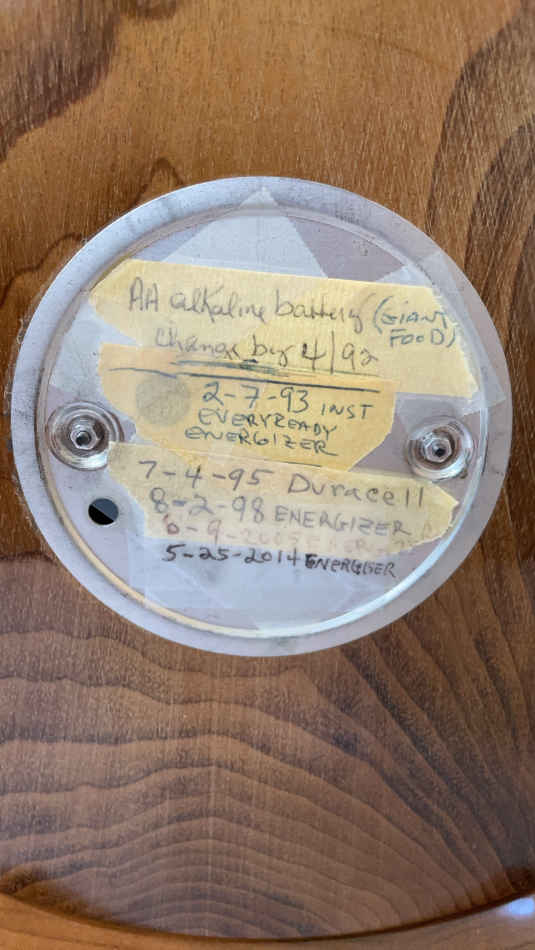 AA alkaline battery (GIANT
FOOD)
change by 4/92
2-7-93 INST
EVERYREADY
ENERGIZER
7-4-95 Duracell
8-2-98 ENERGIZER
6-9-2005
5-25-2014 ENERGISER